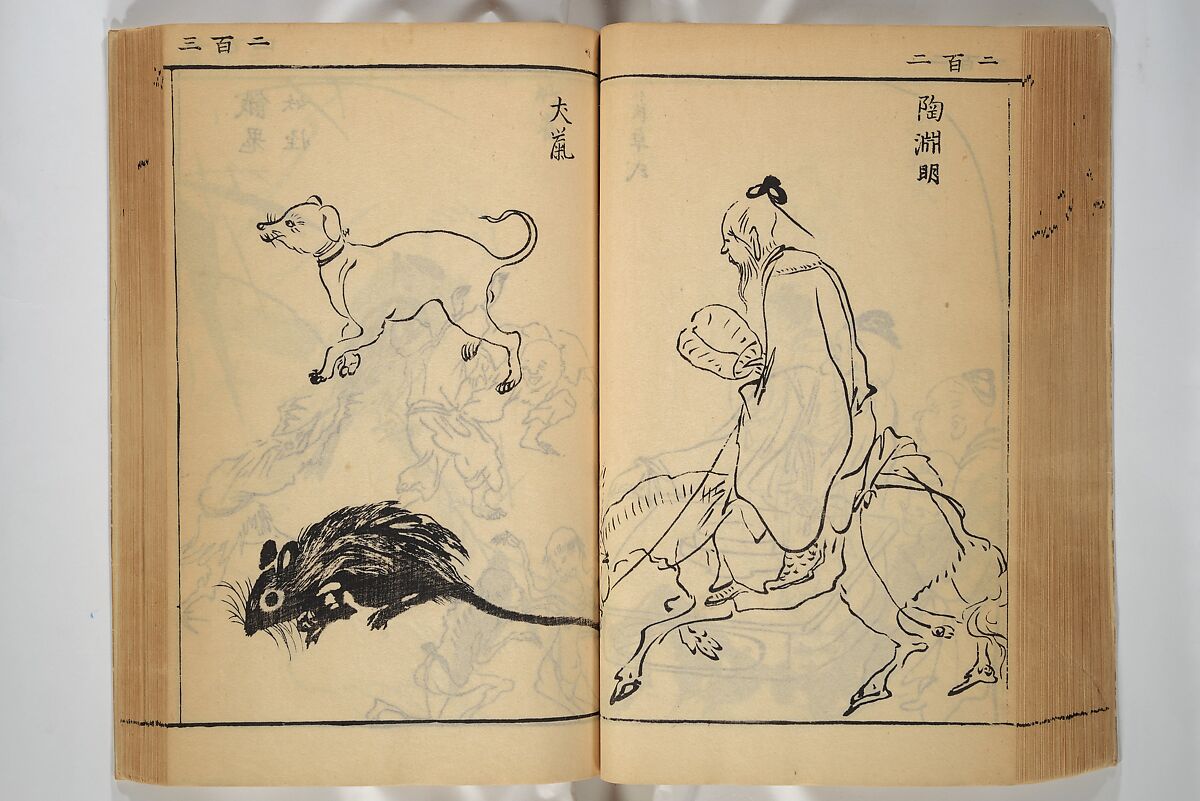 二百二
陶淵明
二百三
犬
鼠